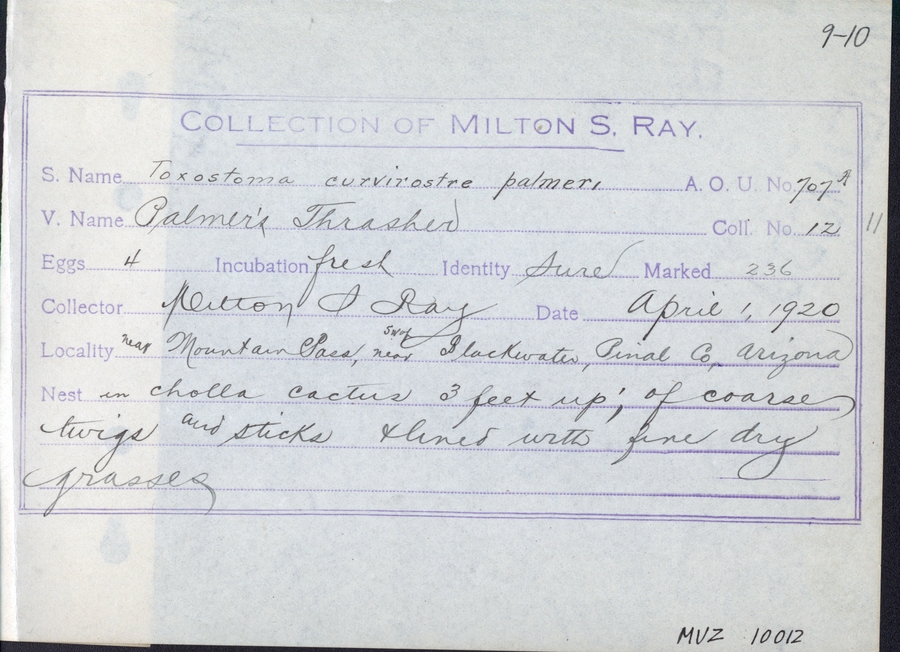 9-10
COLLECTION OF MILTON S. RAY.
S. Name Toxostoma curvirostre palmeri A. O. U. No. 707 A
V. Name Palmer's Thrasher Coll. No. 12 11
Eggs 4 Incubation fresh Identity Sure Marked 236
Collector Milton S Ray Date April 1, 1920
Locality near Mountain Pass, near SW of Blackwater, Pinal Co, Arizona
Nest in cholla cactus 3 feet up; of coarse
twigs and sticks & lined with fine dry
grasses
MVZ 10012